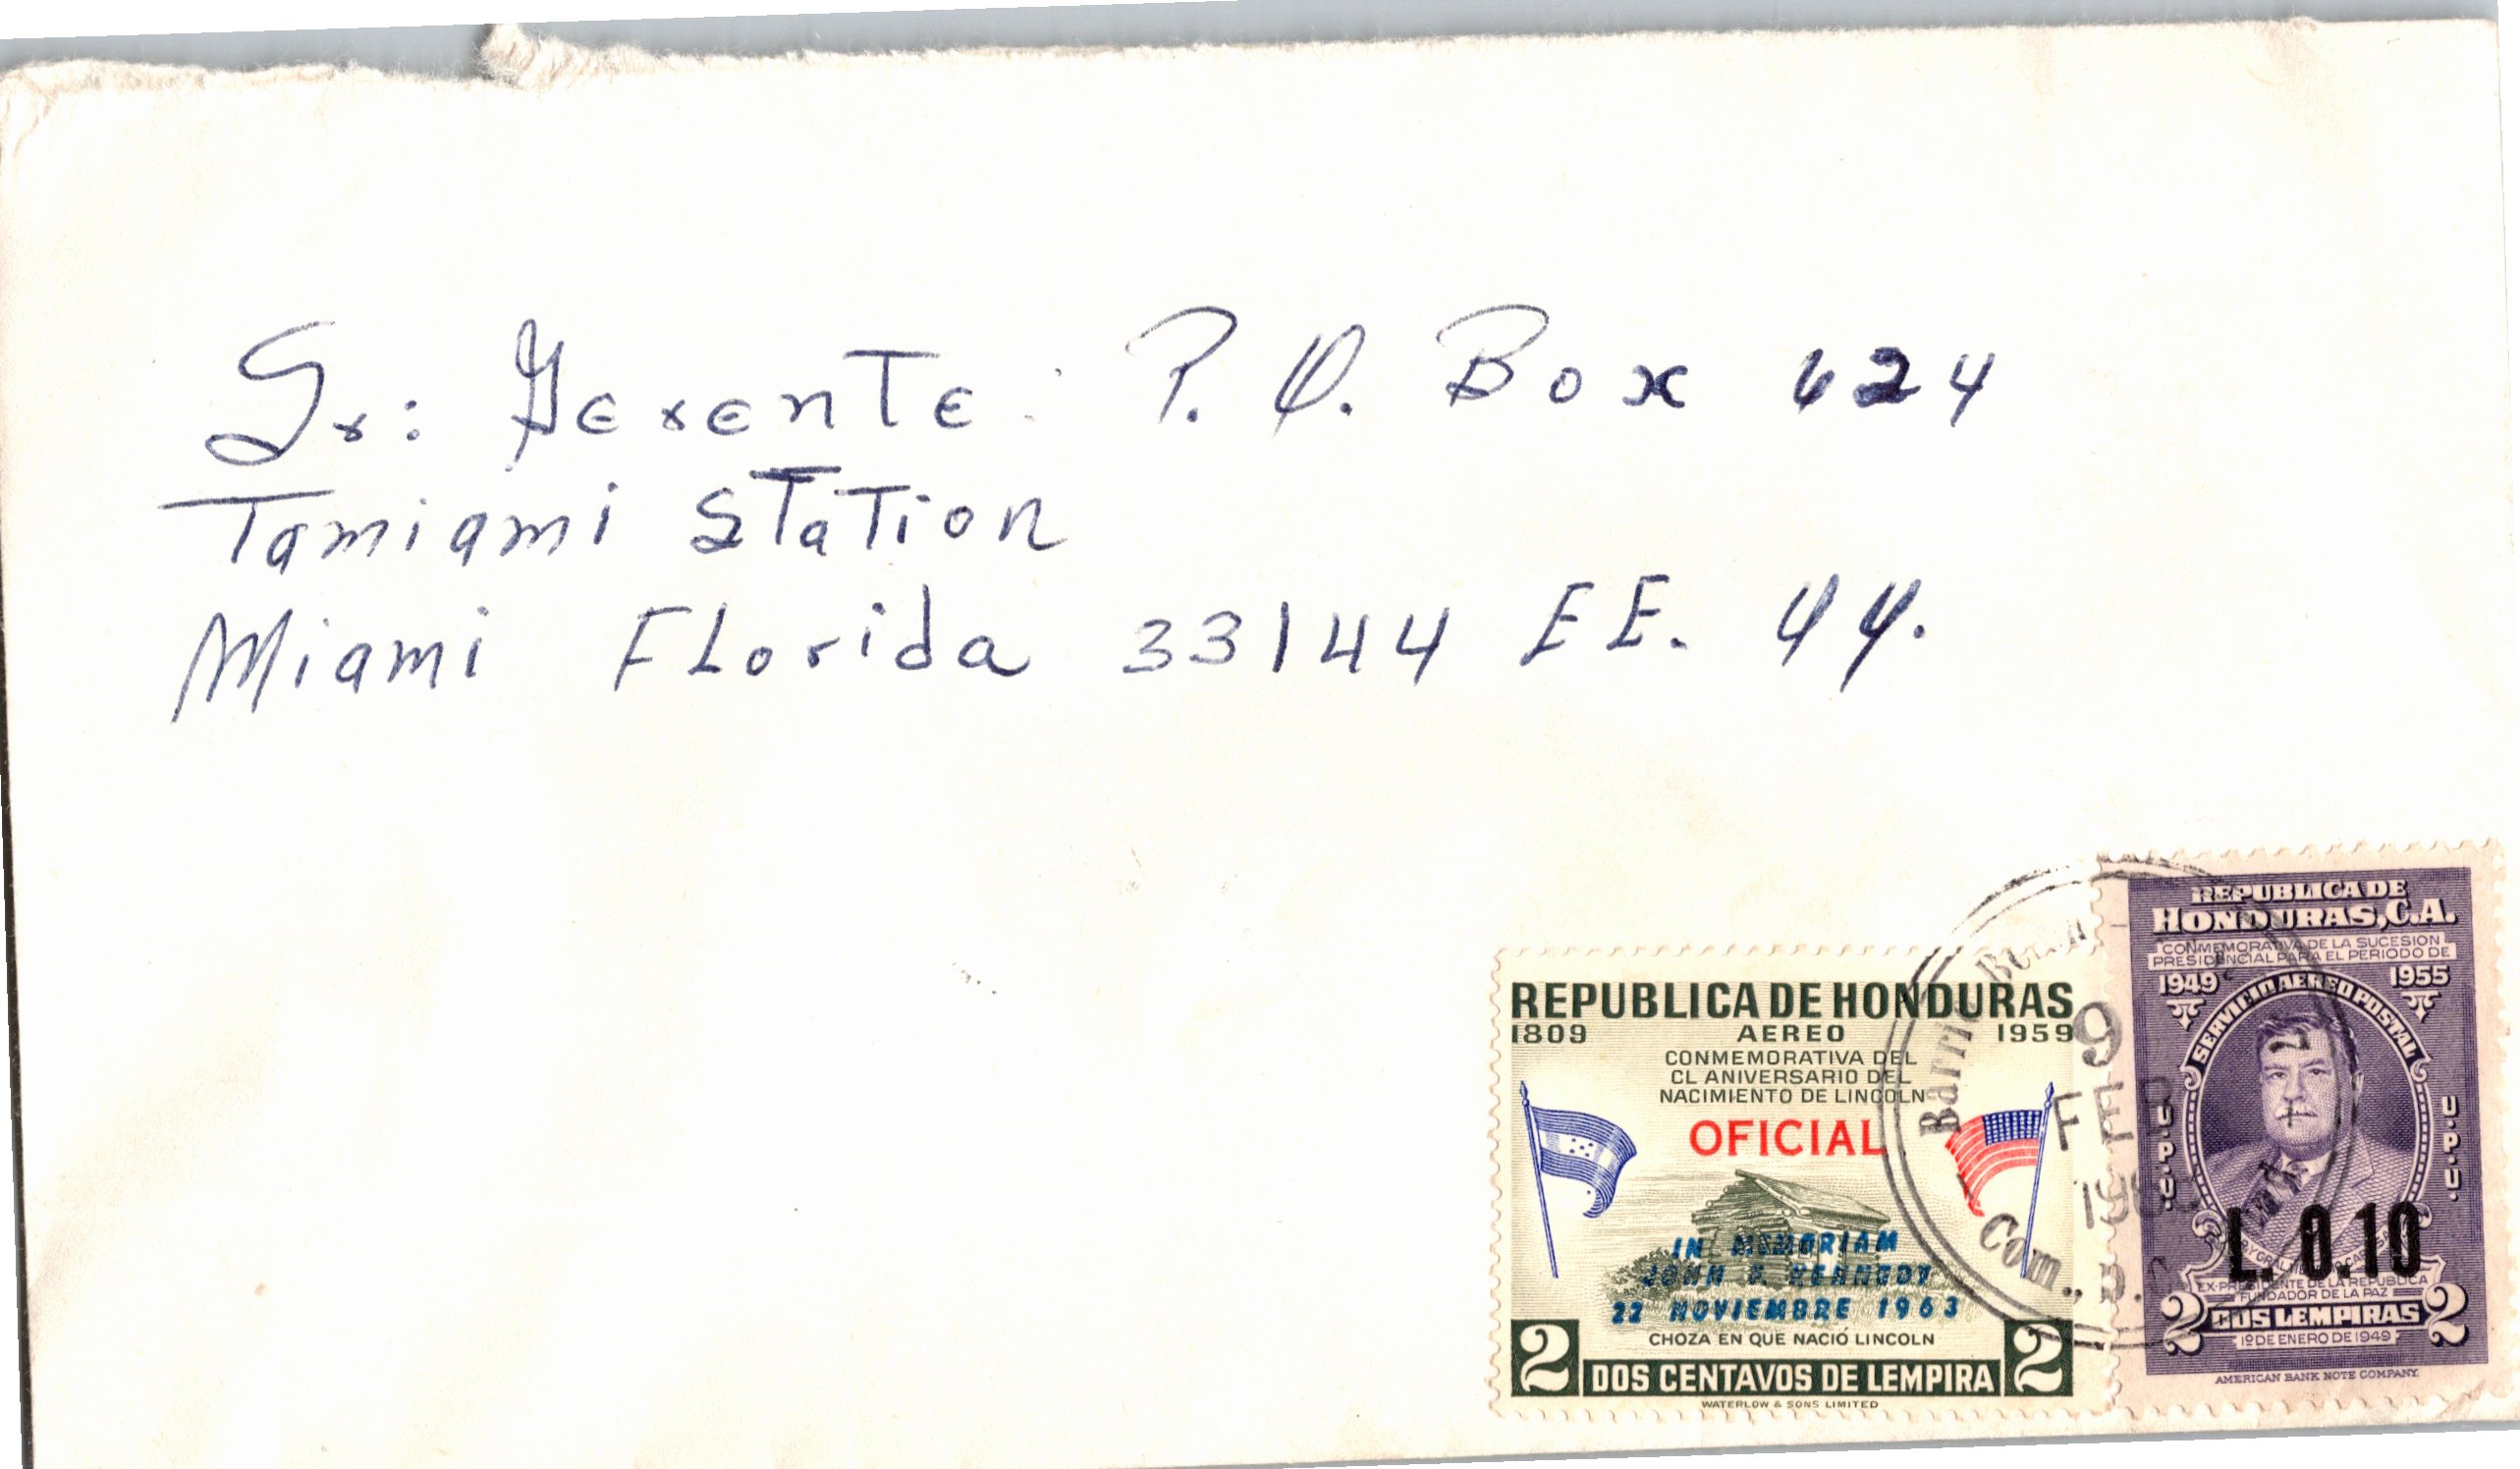 Sr: Gerente: P.O. Box 624
Tamiami Station
Miami Florida 33144 EE. UU.
REPUBLICA DE HONDURAS
1809 AEREO 1959
CONMEMORATIVA DEL
CL ANIVERSARIO DEL
NACIMIENTO DE LINCOLN
OFICIAL
IN MEMORIAM
JOHN F. KENNEDY
22 NOVIEMBRE 1963
CHOZA EN QUE NACIÓ LINCOLN
2 DOS CENTAVOS DE LEMPIRA 2
WATERLOW & SONS LIMITED
Barrio
9
FEB
Com., D.C.
REPUBLICA DE
HONDURAS, C.A.
CONMEMORATIVA DE LA SUCESION
PRESIDENCIAL PARA EL PERIODO DE
1949 1955
SERVICIO AEREO POSTAL
U.P.U. U.P.U.
L. 0.10
EX-PRESIDENTE DE LA REPUBLICA
FUNDADOR DE LA PAZ
2 DOS LEMPIRAS 2
1º DE ENERO DE 1949
AMERICAN BANK NOTE COMPANY.